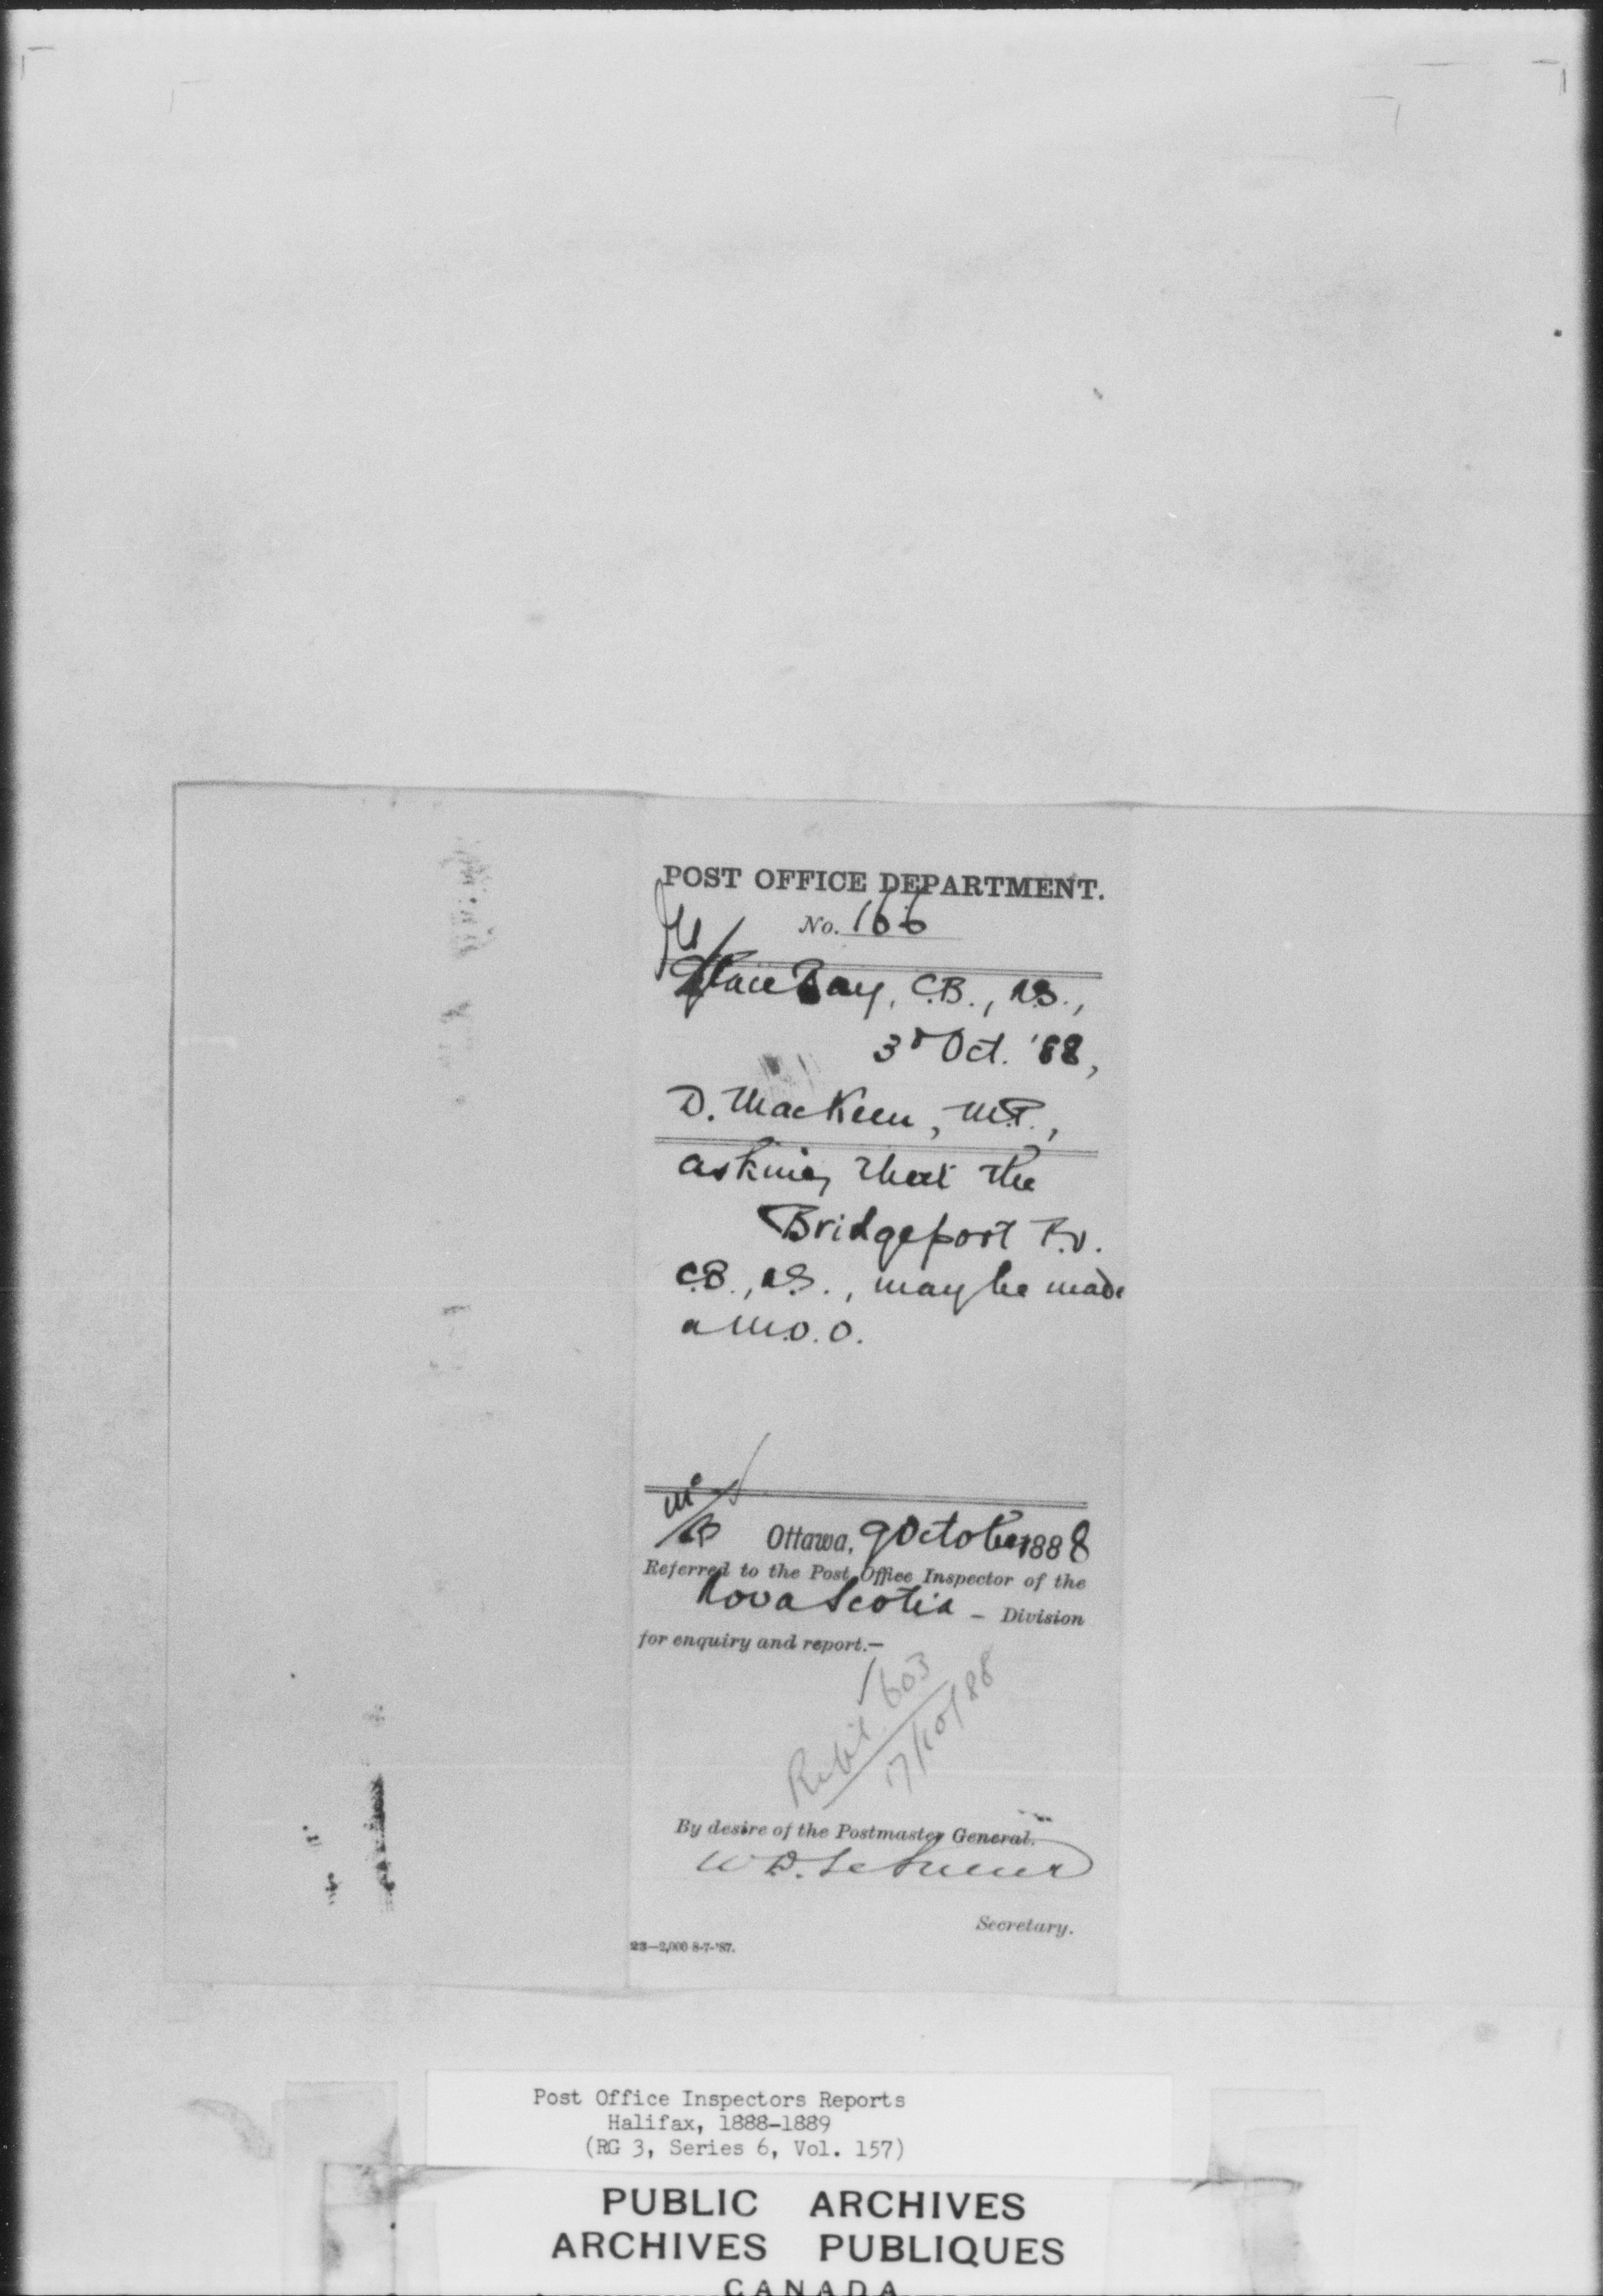 POST OFFICE DEPARTMENT.
No. 166
Glace Bay, C.B., N.S.,
3d Oct. '88,
D. MacKeen, M.P.,
asking that the
Bridgeport P.O.
C.B., N.S., may be made
a M.O.O.
Ottawa, 9 October 1888
Referred to the Post Office Inspector of the
Nova Scotia - Division
for enquiry and report.—
603
17/10/88
By desire of the Postmaster General.
W D. LeSueur
Secretary.
23—2,000 8-7-'87.
Post Office Inspectors Reports
Halifax, 1888-1889
(RG 3, Series 6, Vol. 157)
PUBLIC ARCHIVES
ARCHIVES PUBLIQUES
CANADA